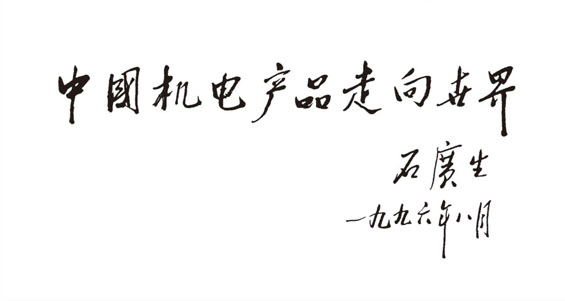 中國机电产品走向世界
石廣生
一九九六年八月